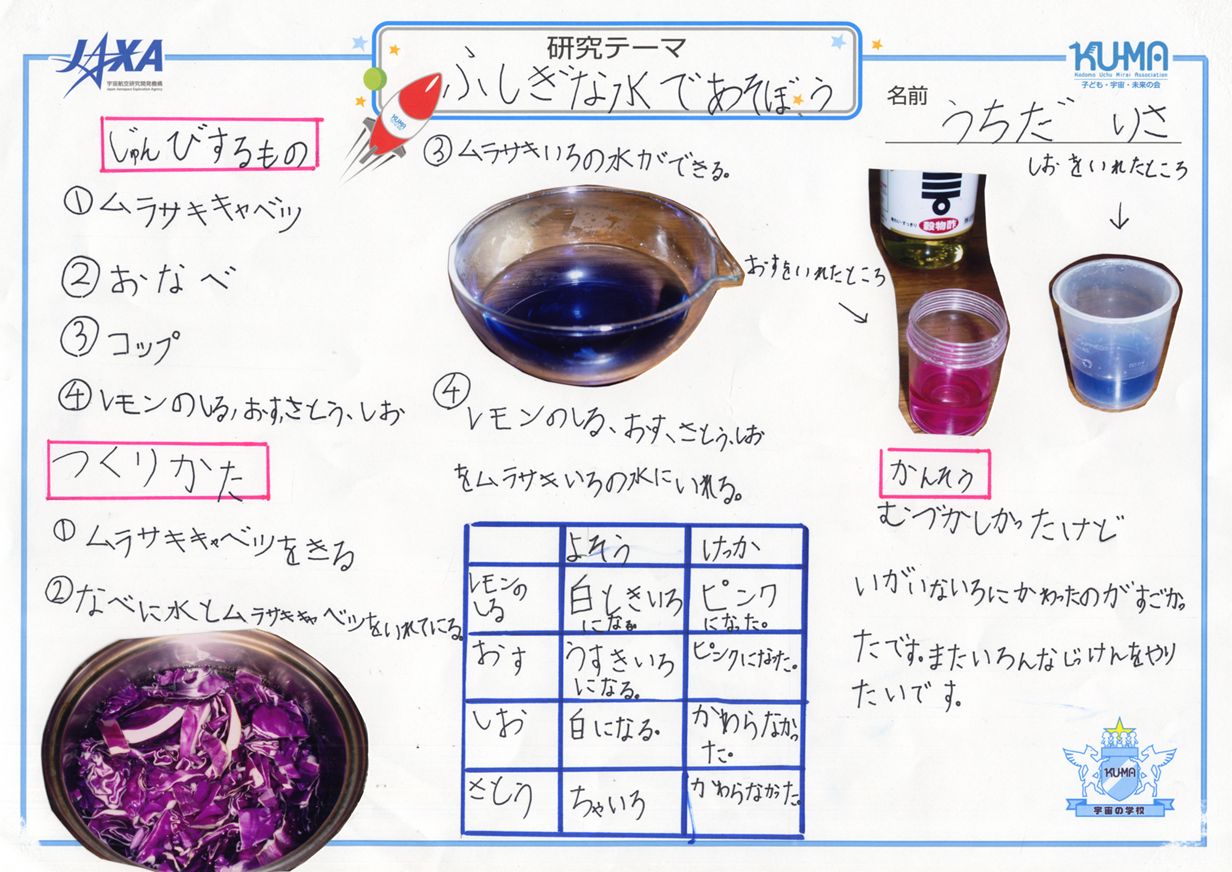 JAXA
宇宙航空研究開発機構
Japan Aerospace Exploration Agency
研究テーマ
ふしぎな水であそぼう
KUMA
Kodomo Uchu Mirai Association
子ども・宇宙・未来の会
名前 うちだ りさ
じゅんびするもの
①ムラサキキャベツ
②おなべ
③コップ
④レモンのしる,おす,さとう、しお
つくりかた
①ムラサキキャベツをきる
②なべに水とムラサキキャベツをいれてにる。
③ムラサキいろの水ができる。
④レモンのしる、おす、さとう、しお
をムラサキいろの水にいれる。
よそう けっか
レモンのしる 白ときいろになる。 ピンクになった。
おす うすきいろになる。 ピンクになった。
しお 白になる。 かわらなかった。
さとう ちゃいろ かわらなかった。
おすをいれたところ
しおをいれたところ
穀物酢
かんそう
むづかしかったけど
いがいないろにかわったのがすごかっ
たです。またいろんなじっけんをやり
たいです。
KUMA
宇宙の学校